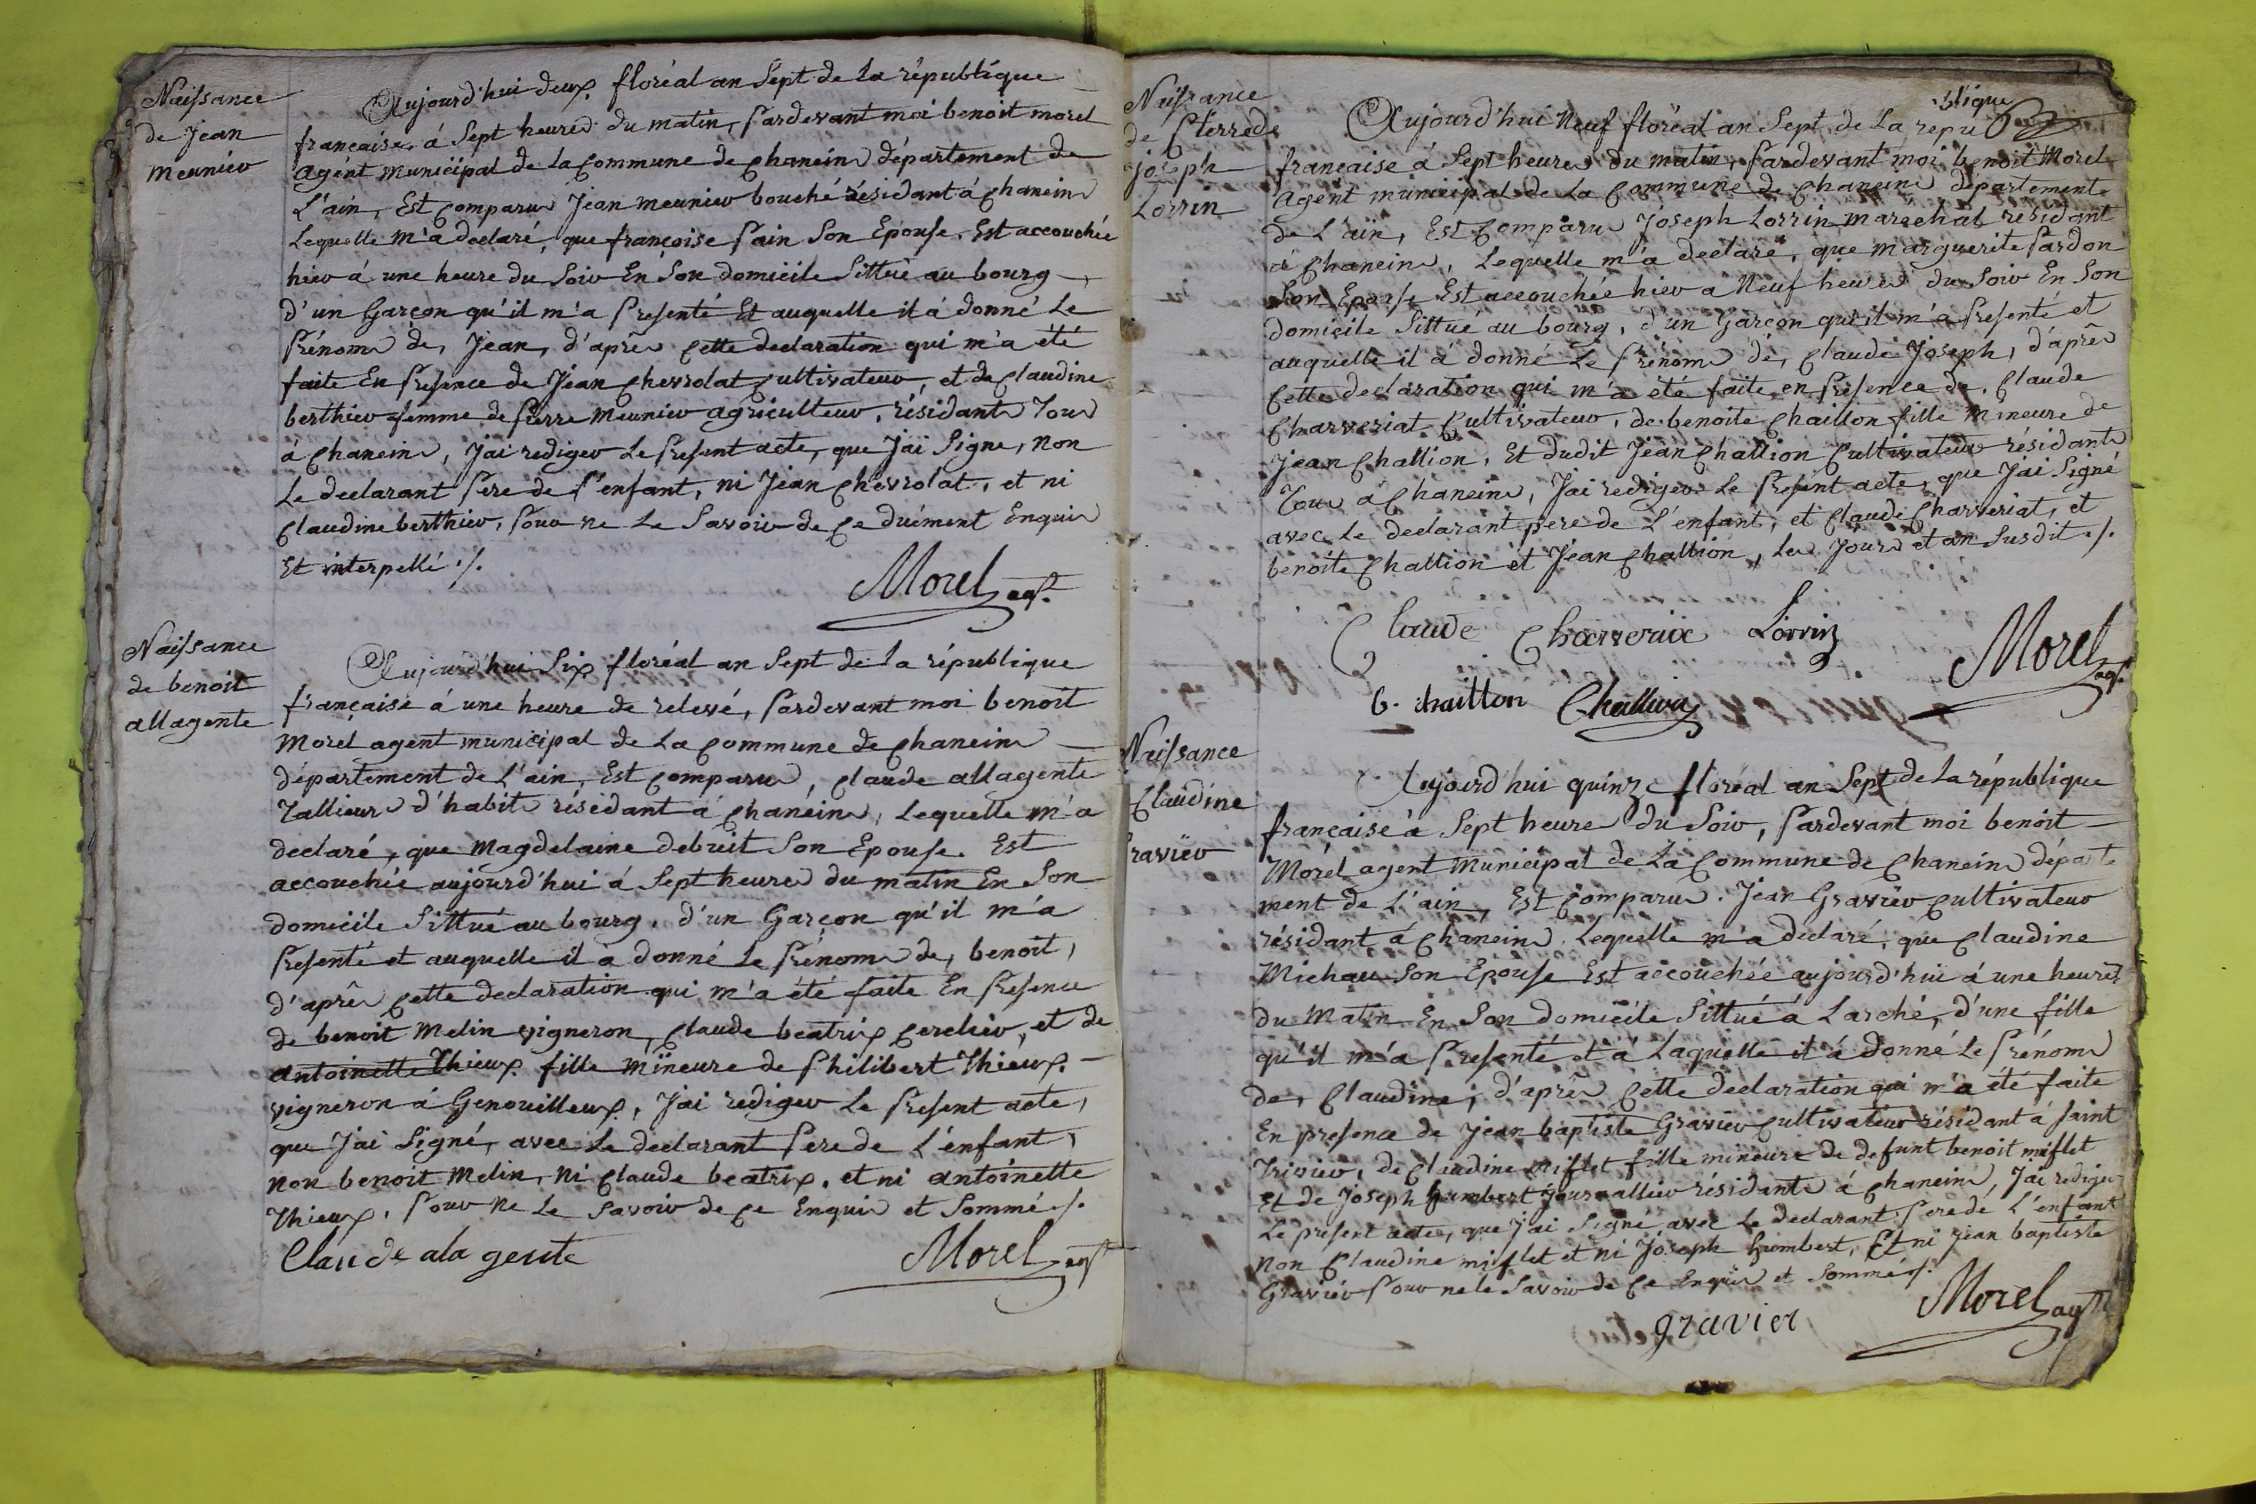 Naissance
de Jean
meunier
Aujourd'hui deux floréal an sept de la république
française, à sept heures du matin, pardevant moi benoit morel
agent municipal de la commune de chaneins département de
L'ain, Est comparu Jean meunier bouché résidant à chaneins
Lequelle m'a declaré, que françoise pain son Epouse. Est accouchée
hier à une heure du soir En son domicile sittué au bourg
d'un Garçon qu'il m'a presenté Et auquelle il à donné Le
prénoms de, Jean, d'après cette declaration qui m'a été
faite En presence de Jean chevrolat cultivateur, et de claudine
berthier femme de pierre meunier agriculteur, résidants Tous
à chaneins, J'ai rediger Le present acte, que J'ai signe, non
Le declarant pere de l'enfant, ni Jean chevrolat, et ni
claudine berthier, pour ne Le savoir de ce duëment Enquis
Et interpellé ./.
Morel agt.
Naissance
de benoit
allagente
Aujourd'hui six floréal an sept de la république
française à une heure de relevé, pardevant moi benoit
Morel agent municipal de La commune de chaneins
département de L'ain, Est comparus, claude allagente
Tallieurs d'habits résidant à chaneins, Lequelle m'a
declaré, que Magdelaine debuit son Epouse. Est
accouchée aujourd'hui à sept heures du matin En son
domicile sittué au bourg, d'un Garçon qu'il m'a
presenté et auquelle il à donné Le prénoms de, benoit,
d'après cette declaration qui m'a été faite En presence
de benoit Melin vigneron, claude beatrix cerclier, et de
antoinette Thieux fille mineure de philibert Thieux.
vigneron à Genouilleux, J'ai rediger Le present acte,
que J'ai signé, avec Le declarant pere de L'enfant,
non benoit Melin, ni claude beatrix, et ni antoinette
Thieux, pour ne Le savoir de ce Enquis et sommé ./.
Claude ala gente
Morel agt
Naissance
de Pierre de
joseph
Lorrin
Aujourd'hui Neuf floréal an sept de La republique
française à sept heures du matin, pardevant moi benoit Morel
agent municipal de La commune de chaneins département
de L'ain, Est comparu Joseph Lorrin marechal résidant
à chaneins, Lequelle m'a declaré, que marguerite pardon
son Epouse Est accouchée hier à Neuf heures du soir En son
domicile sittué au bourg, d'un Garçon qu'il m'a presenté et
auquelle il à donné Le prénoms de, claude Joseph, d'après
cette declaration qui m'a été faite en presence de, claude
charveriat cultivateur, de benoite chaillon fille mineure de
Jean challion, Et dudit Jean challion cultivateur résidants
Tous à chaneins, J'ai rediger Le present acte, que J'ai signé
avec Le declarant pere de L'enfant, et claude charveriat, et
benoite challion et Jean challion, Les jours et an susdit ./.
Claude Charveriat Lorrin
Morel agt.
b. chaillon Challion
Naissance
claudine
Gravier
Aujourd'hui quinze floréal an sept de la république
française à sept heures du soir, pardevant moi benoit
Morel agent municipal de La commune de chaneins départe
ment de L'ain, Est comparus. Jean Gravier cultivateur
résidant à chaneins Lequelle m'a declaré, que claudine
Michau son Epouse Est accouchée aujourd'hui à une heures
du matin En son domicile sittué à Larché, d'une fille
qu'il m'a presenté et à Laquelle il à donné Le prénoms
de, claudine, d'après cette declaration qui m'a été faite
En presence de Jean baptiste Gravier cultivateur résidant à saint
Trivier, de claudine miflet fille mineure de defunt benoit miflet
et de Joseph humbert journallier résidants à chaneins, J'ai rediger
Le present acte, que J'ai signé avec Le declarant pere de L'enfant
non claudine miflet et ni Joseph humbert, Et ni jean baptiste
Gravier pour ne le savoir de ce Enquis et sommé ./.
gravier
Morel agt